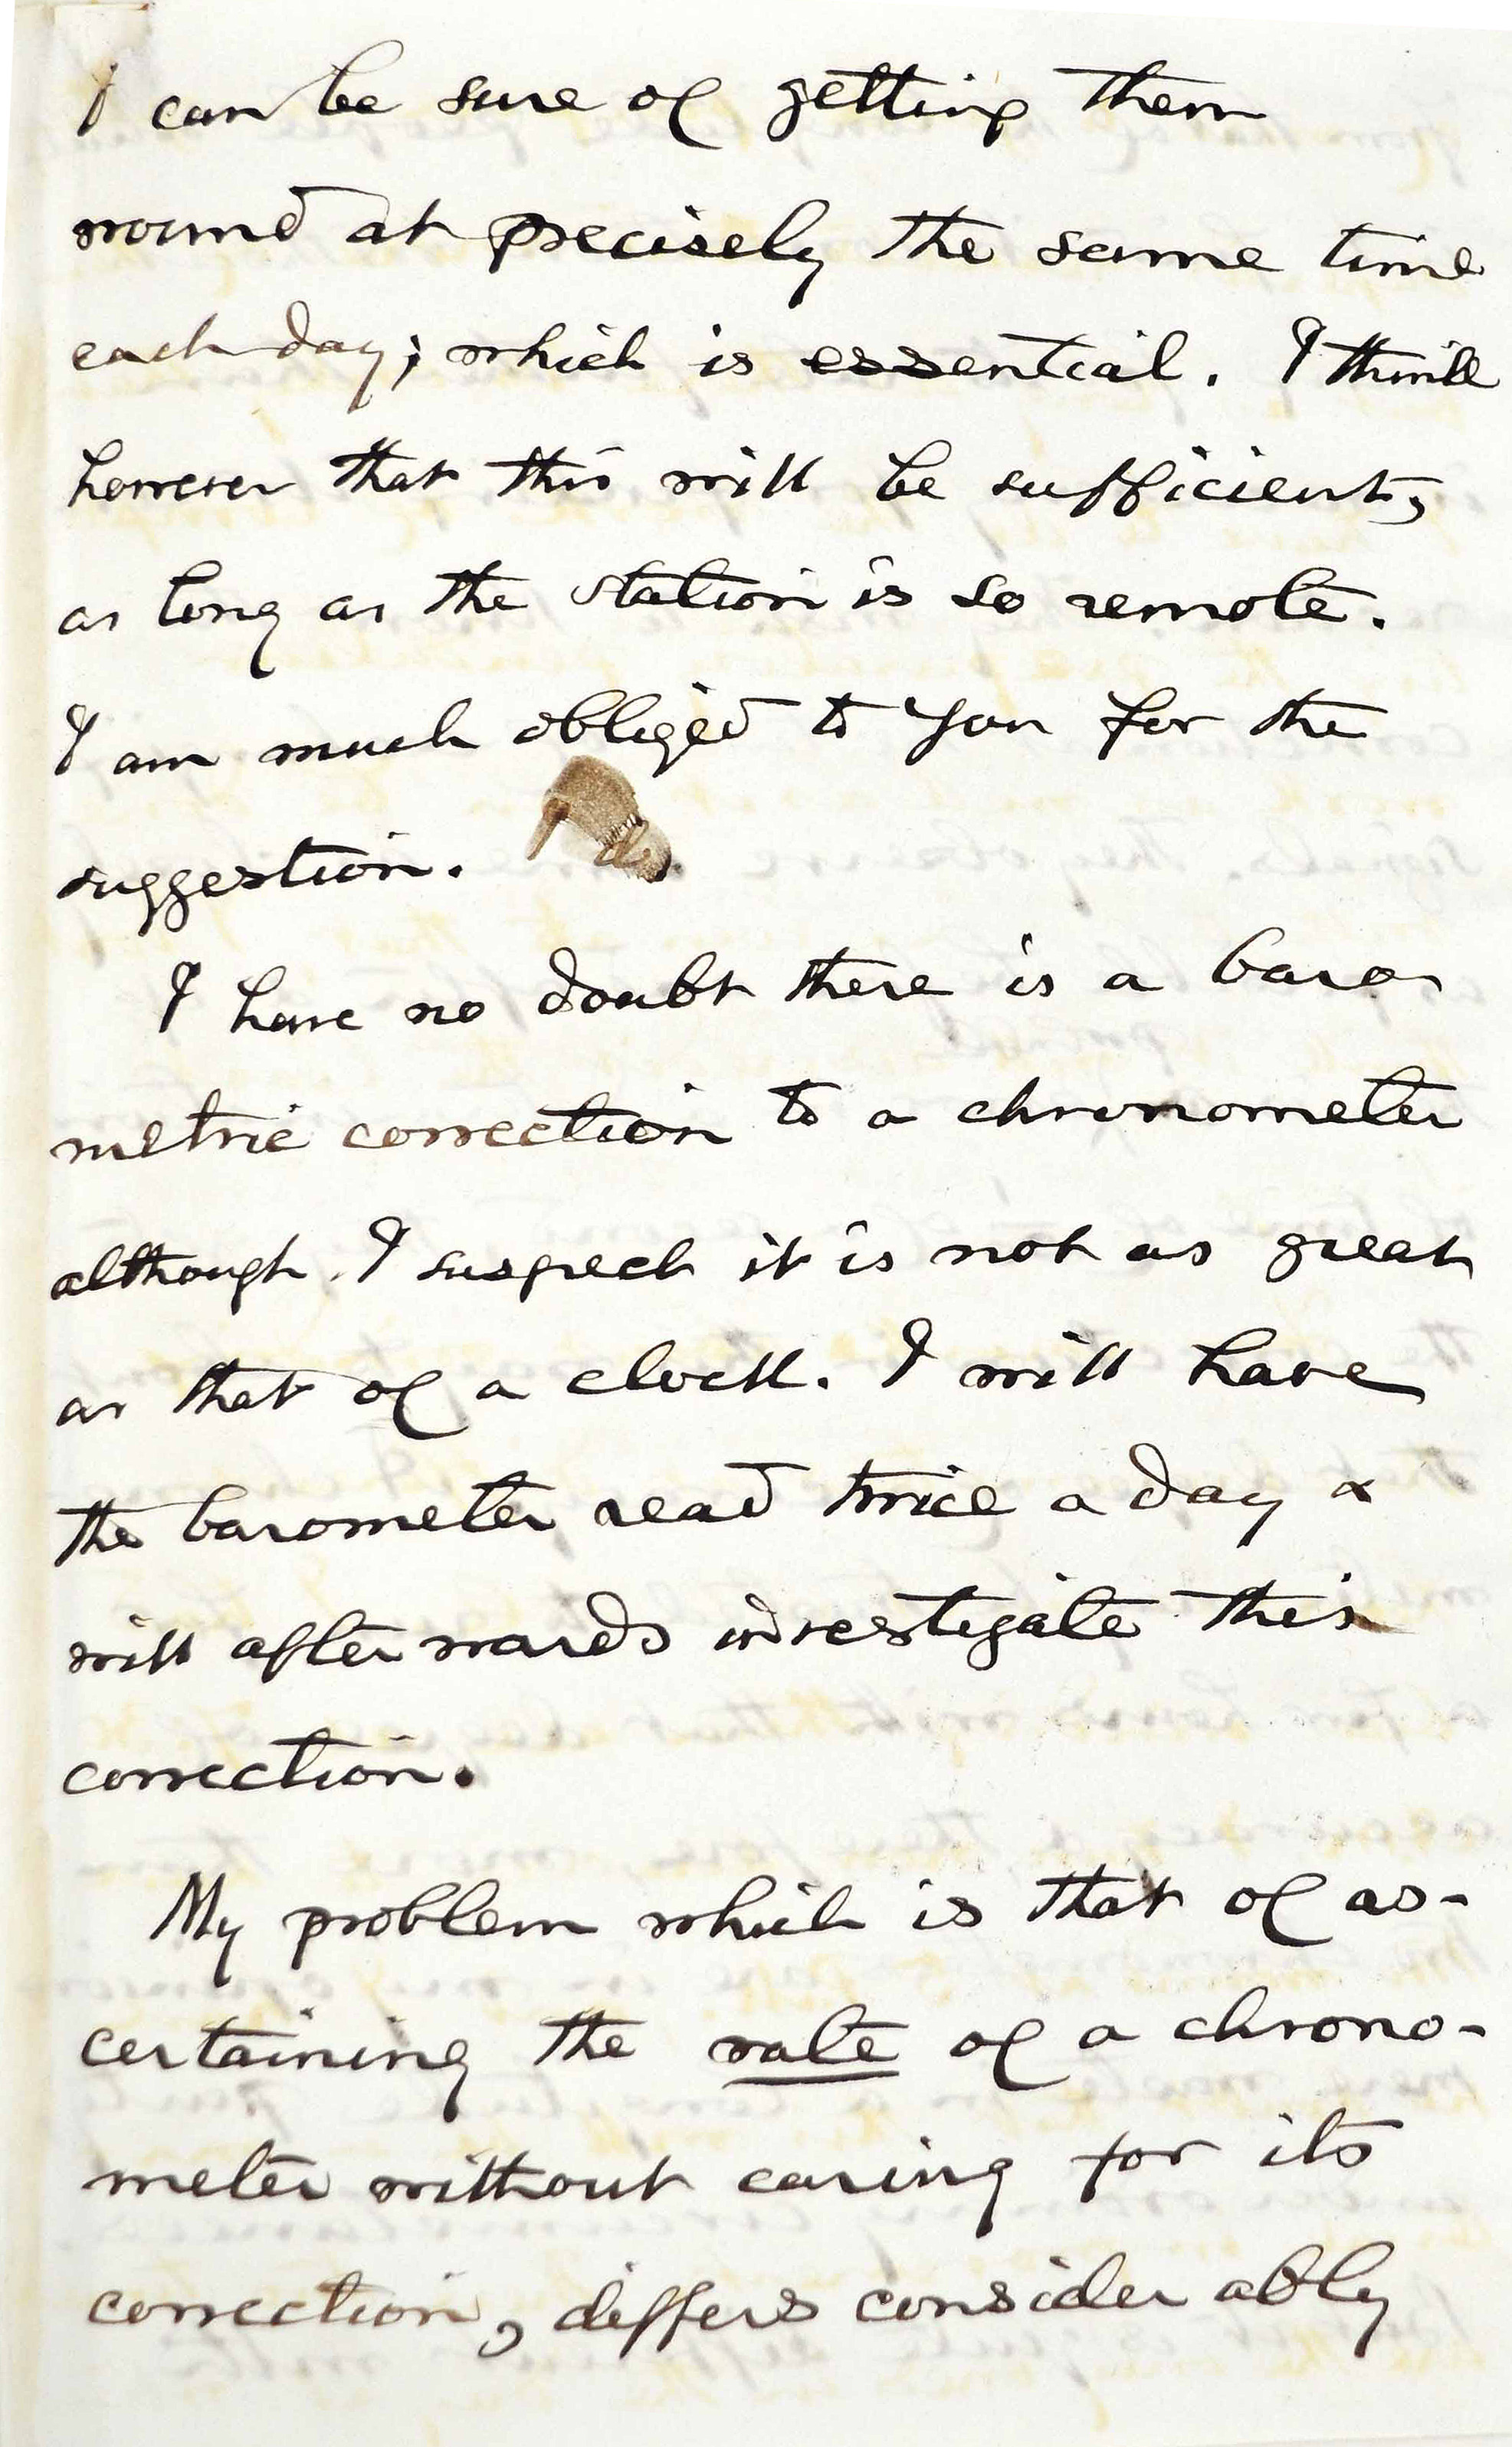 I can be sure of getting them
round at precisely the same time
each day; which is essential. I think
however that this will be sufficient,
as long as the station is so remote.
I am much obliged to you for the
suggestion.
I have no doubt there is a baro-
metric correction to a chronometer
although I suspect it is not as great
as that of a clock. I will have
the barometer read twice a day &
will afterwards investigate this
correction.
My problem which is that of as-
certaining the rate of a chrono-
meter without caring for its
correction, differs considerably